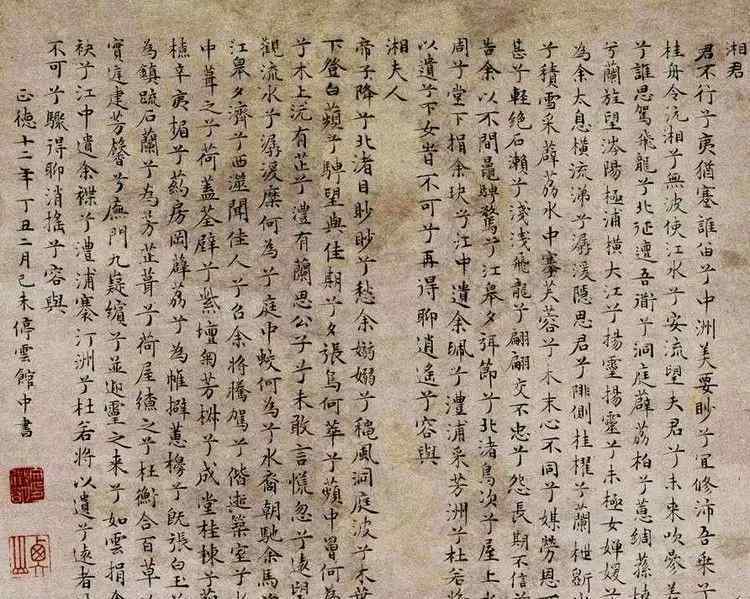 湘君
君不行兮夷猶蹇誰留兮中洲美要眇兮宜修沛吾乘兮
桂舟令沅湘兮無波使江水兮安流望夫君兮未來吹參差
兮誰思駕飛龍兮北征邅吾道兮洞庭薜荔柏兮蕙綢蓀橈
兮蘭旌望涔陽極浦橫大江兮揚靈揚靈兮未極女嬋媛兮
為余太息橫流涕兮潺湲隱思君兮陫側桂櫂兮蘭枻斲
兮積雪采薜荔水中搴芙蓉兮木末心不同兮媒勞恩不
甚兮輕絕石瀨兮淺淺飛龍兮翩翩交不忠兮怨長期不信兮
告余以不閒鼂騁騖兮江皋夕弭節兮北渚鳥次兮屋上水
周兮堂下捐余玦兮江中遺余佩兮澧浦采芳洲兮杜若將
以遺兮下女旹不可兮再得聊逍遙兮容與
湘夫人
帝子降兮北渚目眇眇兮愁余嫋嫋兮穐風洞庭波兮木葉
下登白薠兮騁望與佳期兮夕張鳥何萃兮蘋中罾何為
兮木上沅有芷兮澧有蘭思公子兮未敢言慌忽兮遠望
觀流水兮潺湲麋何為兮庭中蛟何為兮水裔朝馳余馬
江皋夕濟兮西澨聞佳人兮召余將騰駕兮偕逝築室兮水
中葺之兮荷蓋荃壁兮紫壇匊芳椒兮成堂桂棟兮蘭
橑辛夷楣兮葯房罔薜荔兮為帷擗蕙櫋兮既張白玉兮
為鎮疏石蘭兮為芳芷葺兮荷屋繚之兮杜衡合百草兮
實庭建芳馨兮廡門九嶷繽兮並迎靈之來兮如雲捐余
袂兮江中遺余褋兮澧浦搴汀洲兮杜若將以遺兮遠者
不可兮驟得聊消搖兮容與
正德十二年丁丑二月己未停雲館中書